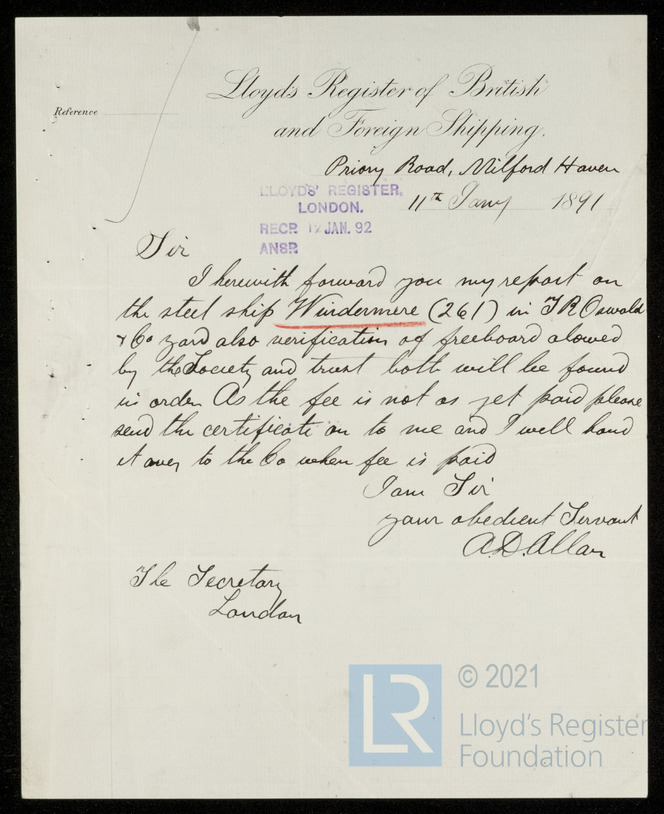 Lloyd's Register of British
and Foreign Shipping.
Reference
Priory Road, Milford Haven
LLOYDS' REGISTER,
LONDON.
RECP. 12 JAN. 92
ANSP.
11th Jany 1891
Sir
I herewith forward you my report on
the steel ship Windermere (261) in T R Oswald
& Co yard also verification of freeboard alowed
by the Society and trust both will be found
in order As the fee is not as yet paid please
send the certificate on to me and I will hand
it over to the Co when fee is paid
I am Sir
your obedient Servant
A.D. Allan
The Secretary
London
LR
© 2021
Lloyd's Register
Foundation